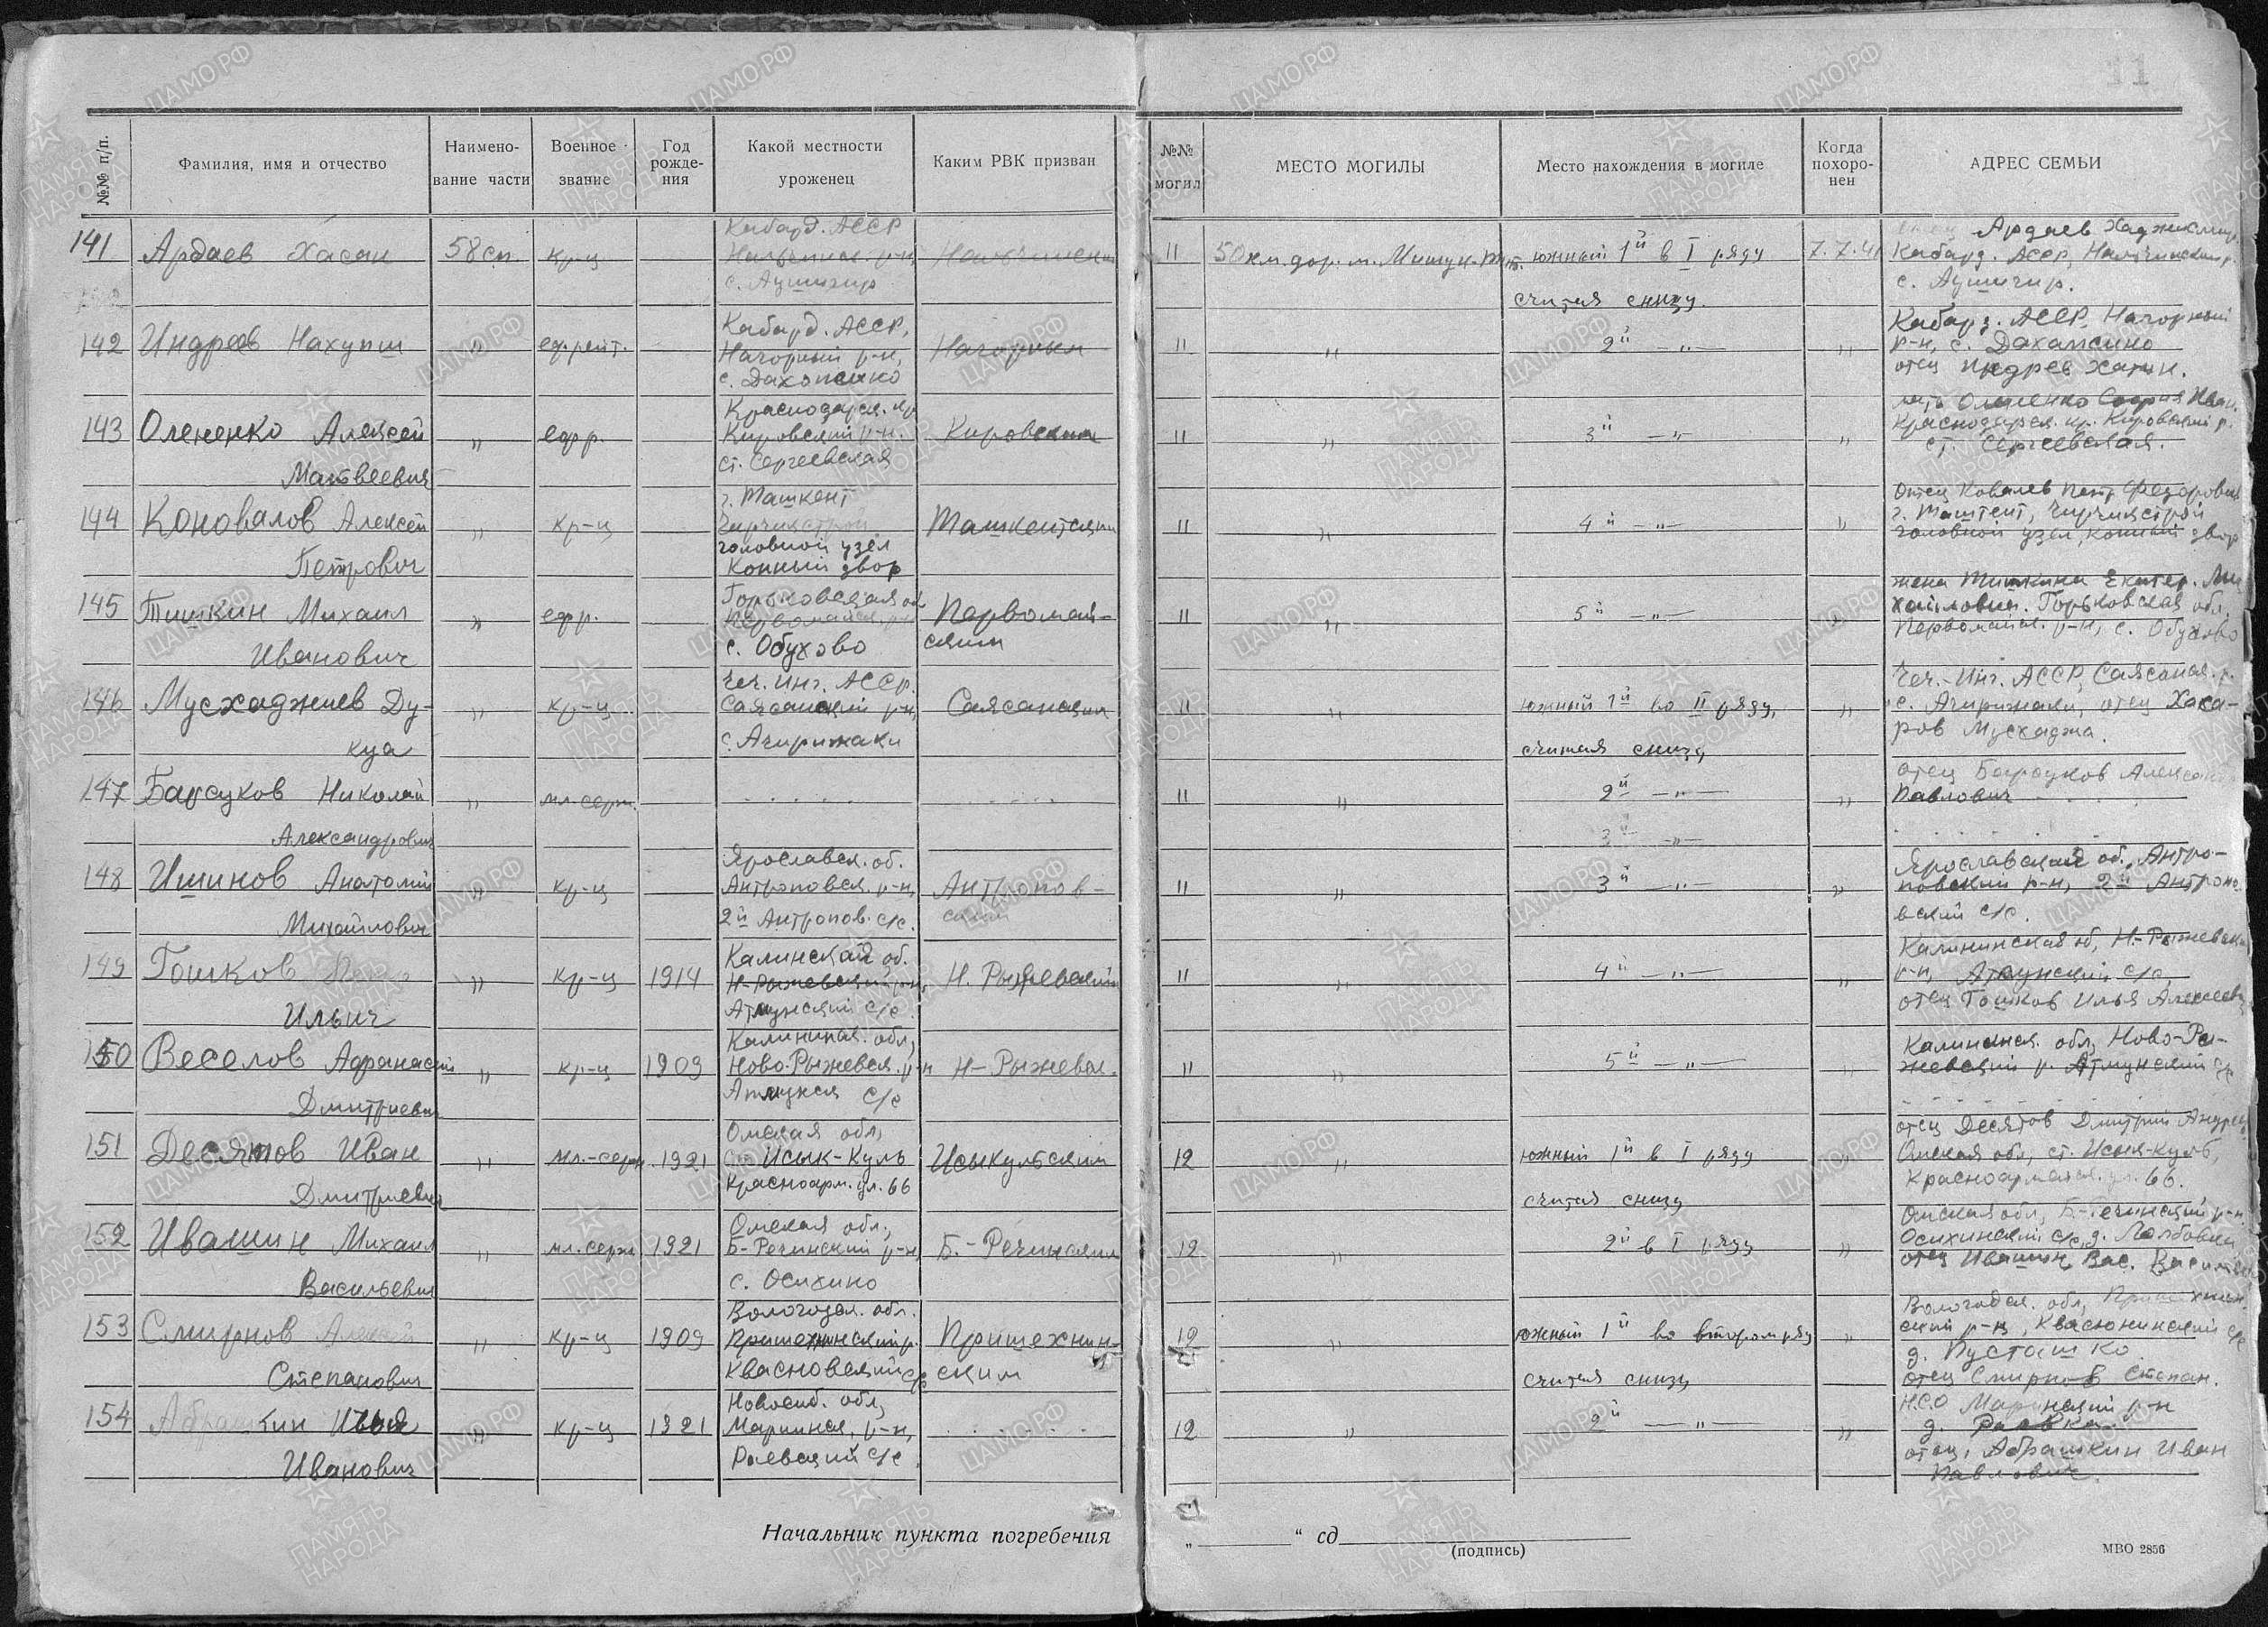 11
№№ п/п.
Фамилия, имя и отчество
Наимено-
вание части
Военное
звание
Год
рожде-
ния
Какой местности
уроженец
Каким РВК призван
№№
могил
МЕСТО МОГИЛЫ
Место нахождения в могиле
Когда
похоро-
нен
АДРЕС СЕМЬИ
141 Ардаев Хасан 58 сп. кр-ц
Кабард. АССР
с. Аушигир
11 50 км. дор. южный 1й в I ряду 7.7.41
считая снизу.
Ардаев
Кабард. АССР, Нальчинский р.
с. Аушигир.
142 Индреев Нахупш " ефрейт.
Кабард. АССР,
Нагорный р-н,
Нагорным
11 " 2й —"— "
Кабард. АССР, Нагорный
р-н, с.
отец Индреев
143 Олененко Алексей " ефр.
Матвеевич
Краснодарск. кр.
Кировский р-н.
ст. Сергеевская
Кировским
11 " 3й —"— "
мать Олененко София Иван.
Краснодарск. кр. Кировский р.
ст. Сергеевская.
144 Коновалов Алексей " кр-ц
Петрович
г. Ташкент
Чирчикстрой
головной узел
Конный двор
Ташкентским
11 " 4й —"— "
Отец Ковалев Петр Федорович
г. Чирчикстрой
головной узел, конный двор
145 Тишкин Михаил " ефр.
Иванович
Горьковская об.
с. Обухово
Первомай-
ским
11 " 5й —"— "
жена Тишкина Екатер. Ми-
хайловна. Горьковская обл.
Первомайск. р-н, с. Обухово
146 Мусхаджиев Ду-
куа
" кр-ц
Чеч. Инг. АССР.
Саясанский р-н,
с.
Саясанским
11 " южный 1й во II ряду,
считая снизу "
Чеч.-Инг. АССР, Саясанск. р.
с. отец Хака-
ров Мусхаджа.
147 Барсуков Николай " мл. серж.
Александрович
11 " 2й —"— "
отец Барсуков Александр
Павлович
3й —"—
148 Ишинов Анатолий " кр-ц
Михайлович
Ярославск. об.
Антроповск. р-н,
2й Антропов. с/с.
Антропов-
ский
11 " 3й —"— "
Ярославский об. Антро-
повский р-н, 2й Антропо-
вский с/с.
149 Гошков " кр-ц 1914
Ильич
Калинской об.
Н-Ржевский р-н,
Н. Рыжевский
11 " 4й —"— "
Калининская об, Н.-Ржевский
р-н, с/с,
отец Гошков Илья Алексеевич
150 Веселов Афанасий " кр-ц 1909
Дмитриевич
обл,
Ново-Рыжевск. р-н
с/с
Н-Рыжевск.
11 " 5й —"—
обл, Ново-Ры-
жевский р. с/с
151 Десятов Иван " мл.-серж. 1921
Дмитриевич
Омская обл,
Исык-Куль
Красноарм. ул. 66
Исыкульским
12 " южный 1й в I ряду
считая снизу "
отец Десятов Дмитрий
Омская обл, ст. Исык-Куль,
ул. 66.
152 Ивашин Михаил " мл. серж. 1921
Васильевич
Омская обл,
Б-Речинский р-н,
с. Осихино
Б.-Речинским
12 " 2й в I ряду "
Омская обл, Б-Речинский р-н
Осихинский с/с, д.
отец Ивашин Вас.
153 Смирнов Алексей " кр-ц 1909
Степанович
Вологодск. обл.
Пришехнинский р.
Квасновский с/с
Пришехнин-
ским
12 " южный 1й во втором ряду
считая снизу "
Вологодск. обл,
ский р-н, Квасюнинский с/с
д. Пусташко
отец Смирнов Степан.
154 Абрашкин Илья " кр-ц 1921
Иванович
Новосиб. обл,
Мариинск. р-н,
Раевский с/с.
12 " 2й —"— "
Н.С.О Мариинский р-н
д. Раевка.
отец, Абрашкин Иван
Павлович.
Начальник пункта погребения
„ “ сд
(подпись)
МВО 2856
ЦАМО.РФ
ПАМЯТЬ
НАРОДА